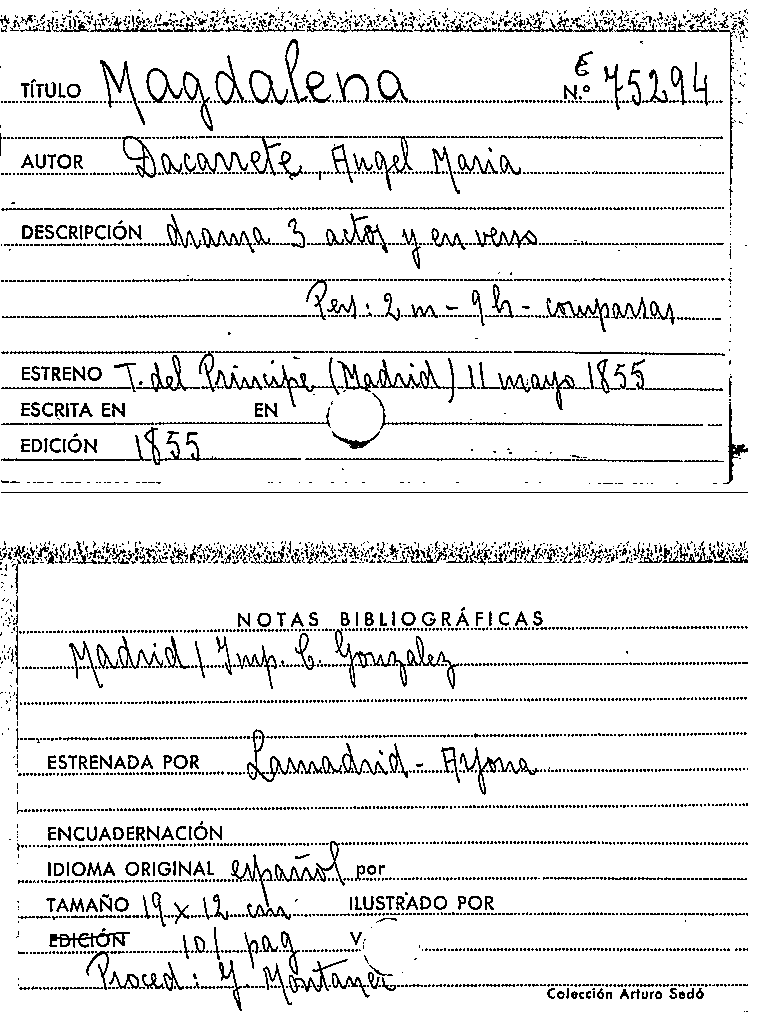 TÍTULO Magdalena € N.º 75294
AUTOR Dacarrete, Angel Maria
DESCRIPCIÓN drama 3 actos y en verso
Pers: 2 m - 9 h - comparsas
ESTRENO T. del Principe (Madrid) 11 mayo 1855
ESCRITA EN EN
EDICIÓN 1855
NOTAS BIBLIOGRÁFICAS
Madrid / Imp. C. Gonzalez
ESTRENADA POR Lamadrid - Arjona
ENCUADERNACIÓN
IDIOMA ORIGINAL español por
TAMAÑO 19 x 12 cm ILUSTRADO POR
EDICIÓN 101 pag V
Proced: Y. Montaner
Colección Arturo Sedó